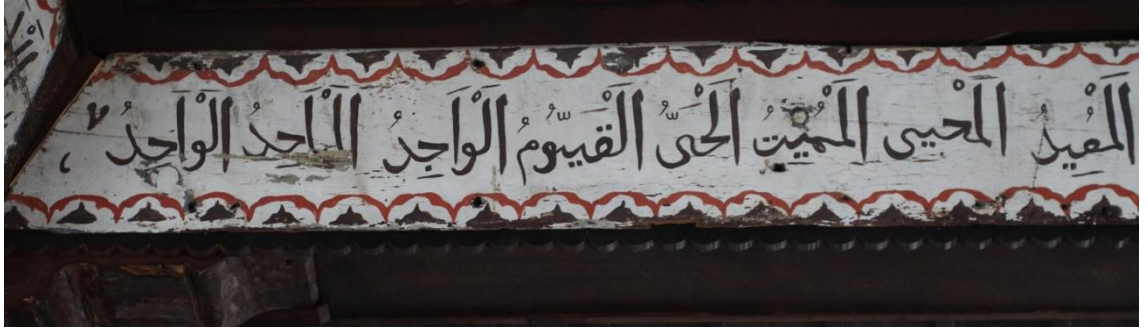 الْمُعِيدُ الْمُحْيِي الْمُمِيتُ الْحَىُّ الْقَيُّومُ الْوَاجِدُ الْمَاجِدُ الْوَاحِدُ